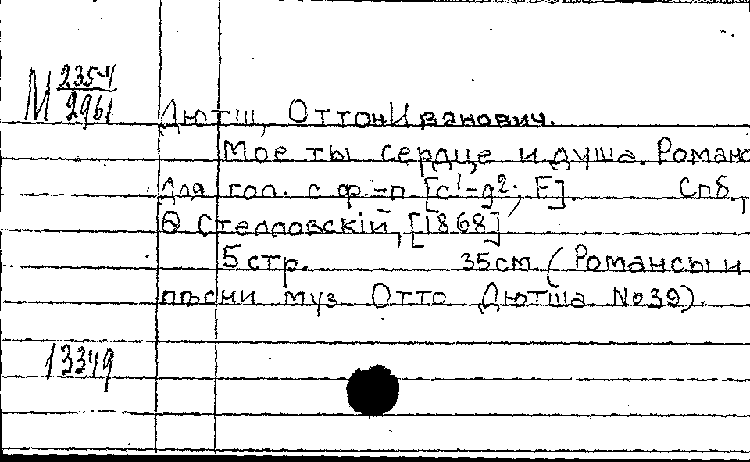 М 2354
2961
Дютш, Оттон Иванович.
Мое ты сердце и душа. Романс
для гол. с ф-п. [c¹-g²; F]. Спб.,
Ѳ Стелловскій, [1868]
5 стр. 35см (Романсы и
пѣсни муз Отто Дютша №39).
13349